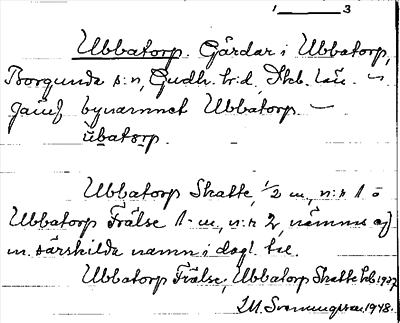 1 3
Ubbatorp. Gårdar i Ubbatorp,
Borgunda s:n, Gudh. h:d, Skb. län. —
Jämf bynamnet Ubbatorp —
ubatorp
Ubbatorp Skatte, 1/2 m, n:r 1 o
Ubbatorp Frälse 1 m, n:r 2, nämnes ej
m. särskilda namn i dagl. tal.
Ubbatorp Frälse, Ubbatorp Skatte Jrb. 1937
I. M. Svenungsson 1948.